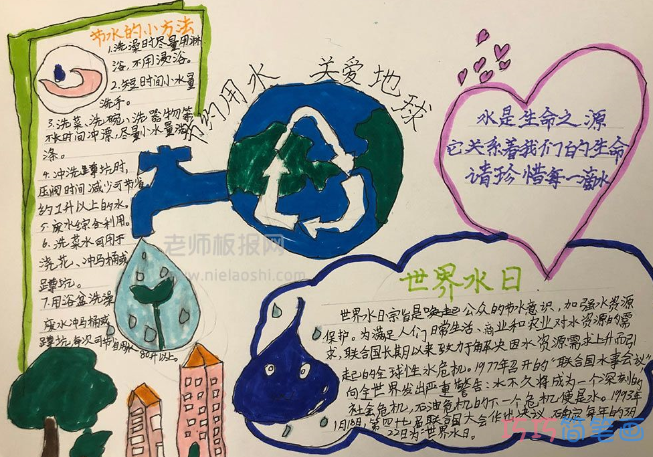 节水的小方法
1.洗澡时尽量用淋
浴,不用浸浴。
2.短时间小水量
洗手。
3.洗菜、洗碗、洗畜物等
时间冲源,尽量小水量
涤。
4.冲洗蹲坑时,
压阀时间减少可节
约1升以上的水。
5.废水综合利用。
6.洗菜水可用于
浇花、冲马桶或
蹲坑。
7.用浴盆洗澡
废水冲马桶或
蹲坑,每次可节
80升以上。
节约用水 关爱地球
水是生命之源
它关系着我们的生命
请珍惜每一滴水
老师板报网
www.nielaoshi.com
世界水日
世界水日宗旨是唤起公众的节水意识,加强水资源
保护。为满足人们日常生活、商业和农业对水资源的需
求,联合国长期以来致力于解决因水资源需求上升而引
起的全球性水危机。1977年召开的“联合国水事会议”
向全世界发出严重警告:水不久将成为一个深刻的
社会危机,石油危机的下一个危机便是水。1993年
1月18日,第四十七届联合国大会作出决议,确定每年的3月
22日为世界水日。
巧巧简笔画